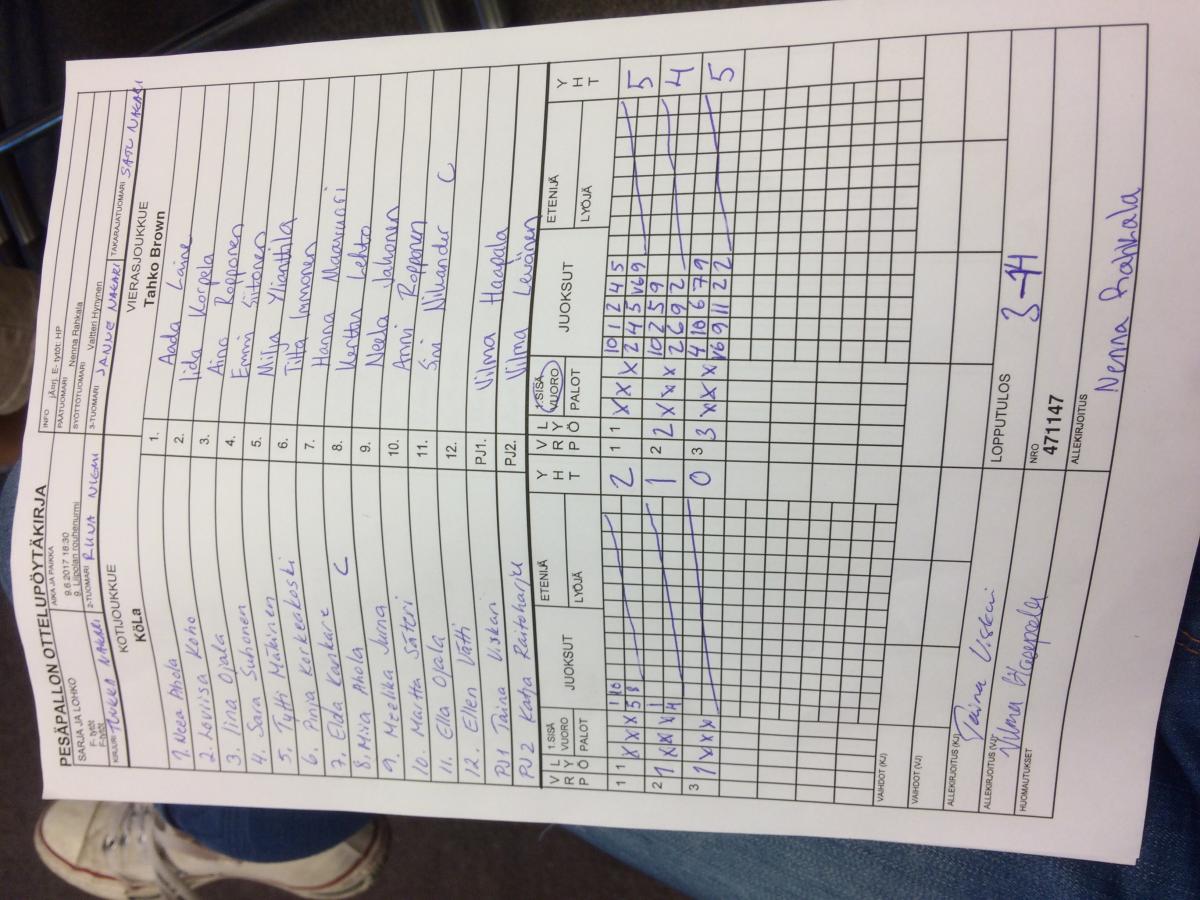 PESÄPALLON OTTELUPÖYTÄKIRJA
SARJA JA LOHKO
F- tytöt
F-tytöt
AIKA JA PAIKKA
9.6.2017 18:30
9. Liipolan rouhenurmi
INFO jÄorj. E- tytöt: HP
PÄÄTUOMARI
SYÖTTÖTUOMARI Nenna Rahkala
Valtteri Hynynen
KIRJURI TUUKKA NAKARI
2-TUOMARI
3-TUOMARI JANNE NAKARI
TAKARAJATUOMARI SATU NAKARI
KOTIJOUKKUE
Köla
VIERASJOUKKUE
Tahko Brown
1. Neea Ahola
2. Loviisa Koho
3. Iina Ojala
4. Sara Suhonen
5. Tytti Mäkinen
6. Pinja Korkeakoski
7. Eida Kaskare C
8. Miia Ahola
9. Meelika Juna
10. Martta Säteri
11. Ella Ojala
12. Ellen Vätti
PJ1 Taina Uskari
PJ2 Katja Raitoharju
1. Aada Laine
2. Iida Korpela
3. Aino Ropponen
4. Emmi Siitonen
5. Milja Ylianttila
6. Tiita Immonen
7. Hanna Maavuori
8. Kerttu Lehto
9. Neela Jahonen
10. Anni Roppanen
11. Sini Nikander C
12.
PJ1. Vilma Haapala
PJ2. Vilma Leväinen
V L
R Y
P Ö
1.SISÄ
VUORO
PALOT
JUOKSUT
ETENIJÄ
LYÖJÄ
Y
H
T
V L
R Y
P Ö
1.SISÄ
VUORO
PALOT
JUOKSUT
ETENIJÄ
LYÖJÄ
Y
H
T
1 1 X X X 2
1 1 X X X 10 1 2 4 5 5
2 4 5 V6 9
2 1 X X X 1
2 2 X X X 10 2 5 9 4
2 6 9 2
3 1 X X X 0
3 3 X X X 4 10 6 7 9 5
V6 9 11 2 2
VAIHDOT (KJ)
VAIHDOT (VJ)
ALLEKIRJOITUS (KJ)
ALLEKIRJOITUS (VJ)
HUOMAUTUKSET
LOPPUTULOS 3-14
NRO
471147
ALLEKIRJOITUS
Nenna Rahkala